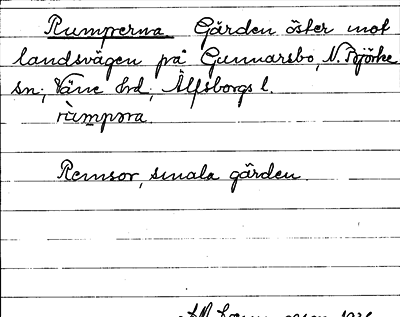 Rumperna Gärden öster mot
landsvägen på Gunnarsbo, N. Björke
sn; Väne hd; Älfsborgs l.
rùmpəra.
Remsor, smala gärden.